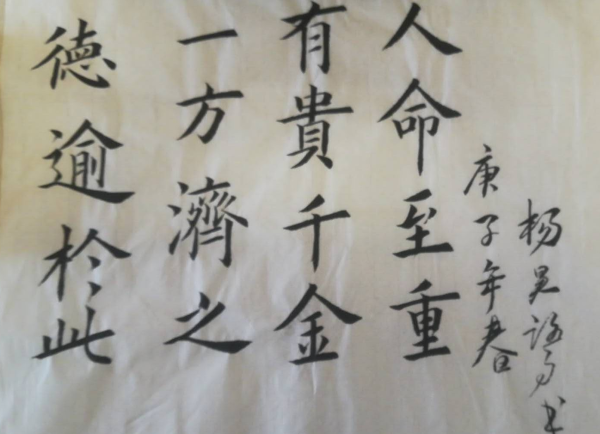 人命至重
有貴千金
一方濟之
德逾於此
庚子年春
杨昊
书